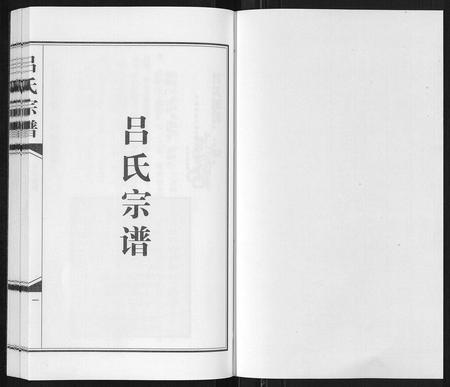 吕氏宗谱
吕氏宗谱
一